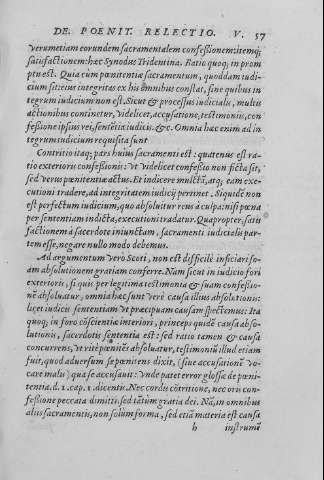 DE POENIT. RELECTIO. V. 57
verum etiam eorundem sacramentalem confeßionem: itemq;
satisfactionem: hæc Synodus Tridentina. Ratio quoq; in prom
ptu est. Quia cum pœnitentiæ sacramentum, quoddam iudi-
cium sit: eius integritas ex his omnibus constat, sine quibus in
tegrum iudicium non est. Sicut & processus iudicialis, multis
actionibus continetur, videlicet, accusatione, testimonijs, con-
feßione ipsius rei, sentẽtia iudicis. &c. Omnia hæc enim ad in
tegrum iudicium requisita sunt
Contritio itaq; pars huius sacramenti est: quatenus est ra-
tio exterioris confeßionis: vt videlicet confeßio non ficta sit,
sed verus pœnitentiæ actus. Et indicere multctã, atq; eam exe-
cutioni tradere, ad integritatem iudicij pertinet. Siquidẽ non
est perfectum iudicium, quo absoluitur reus à culpa: nisi pœna
per sententiam indicta, executioni tradatur. Quapropter, satis
factionem à sacerdote iniunctam, sacramenti iudicialis par-
tem esse, negare nullo modo debemus.
Ad argumentum verò Scoti, non est difficilè inficiari so-
am absolutionem gratiam conferre. Nam sicut in iudicio fori
exterioris, si quis per legitima testimonia & suam confeßio-
nẽ absoluatur, omnia hæc sunt verè causa illius absolutionis:
licet iudicis sententiam vt præcipuam causam spectemus: Ita
quoq; in foro cõscientiæ interioris, princeps quidẽ causa abso-
lutionis, sacerdotis sententia est: sed ratio tamen & causa
concurrens, vt ritè pœnitẽs absoluatur, testimoniũ illud etiam
fuit, quod aduersum se pœnitens dixit, (siue accusationẽ vo-
care malis) qua se accusauit: Vnde patet error glossæ de pœni-
tentia. d. 1. cap. 1. dicentis. Nec cordis cõtritione, nec oris con-
feßione peccata dimitti: sed tãtùm gratia dei. Nã, in omnibus
alijs sacramentis, non solùm forma, sed etiã materia est causa
h instrumẽ